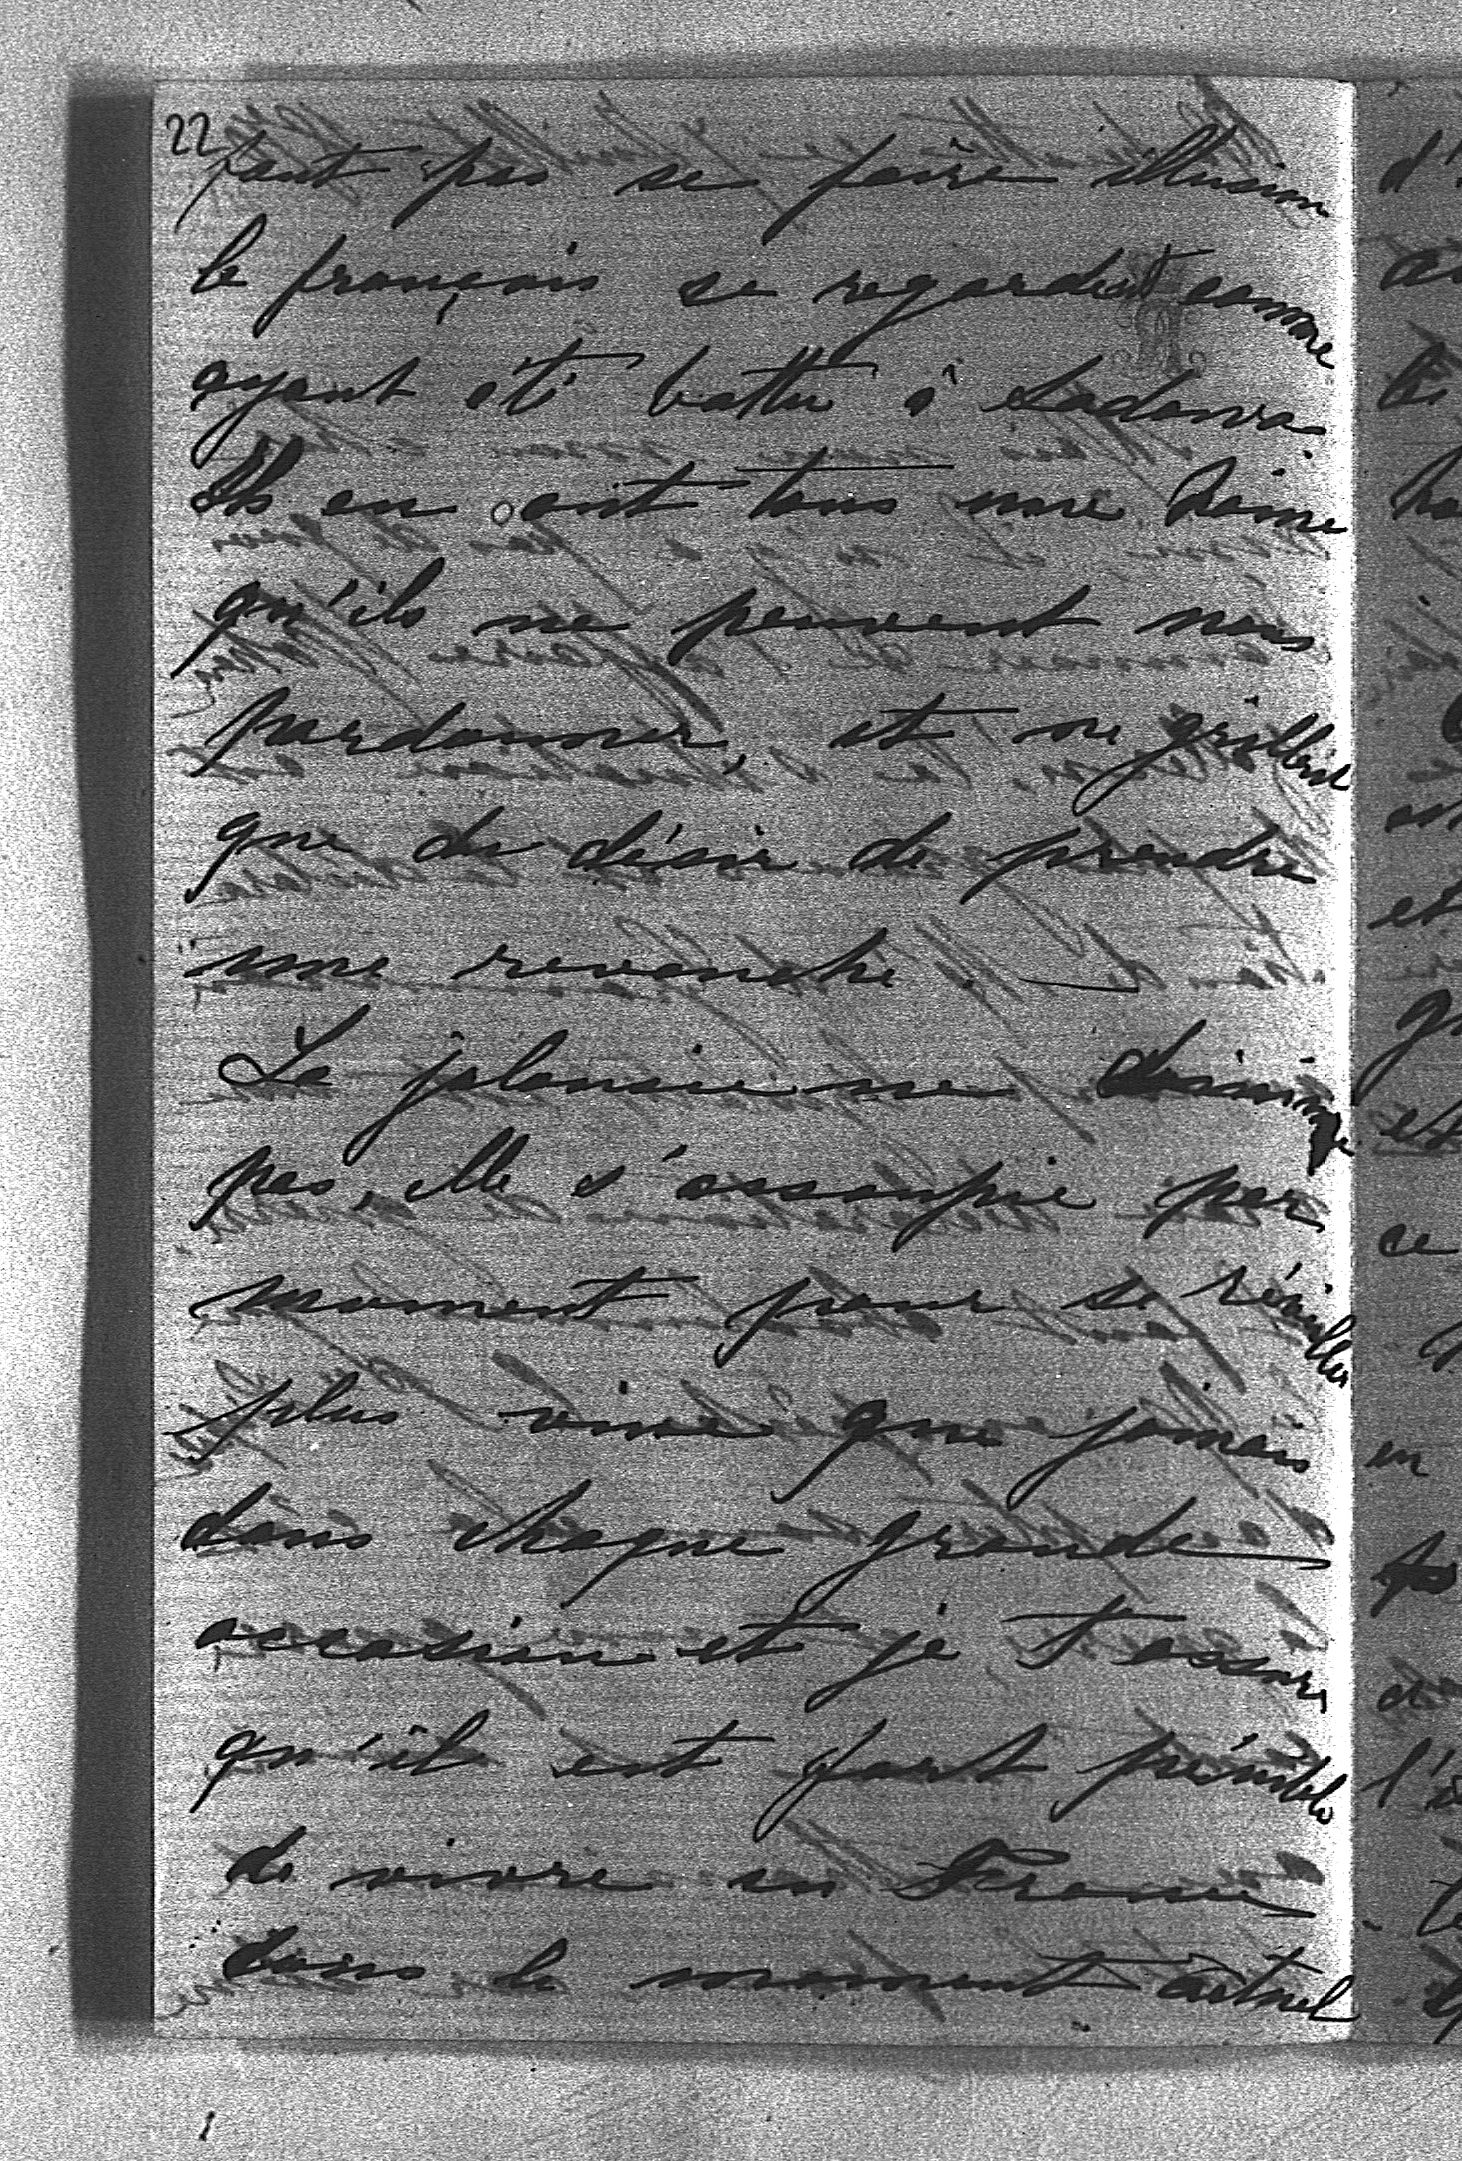 22
faut pas se faire illusion
le français se regardent comme
ayant été battu à Sadowa
Ils en ont tous une haine
qu'ils ne peuvent nous
pardonner, et ne grillent
que du désir de prendre
une revanche. —
La jalousie ne diminue
pas, elle s'assoupie par
moment pour se réveiller
plus vive que jamais
dans chaque grande
occasion et je t'assure
qu'il est fort pénible
de vivre en France
dans le moment actuel